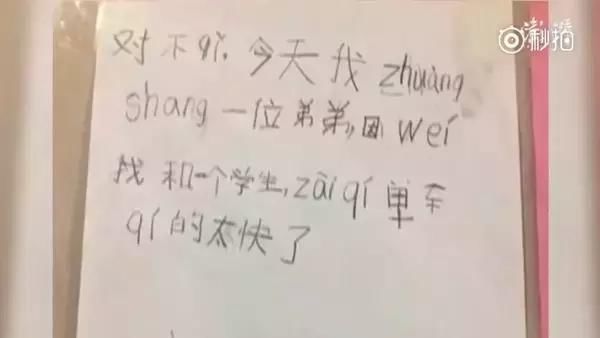 秒拍
对不qǐ. 今天找zhuàng
shang一位弟弟,因wéi
找和一个学生,zài qí单车
qí的太快了